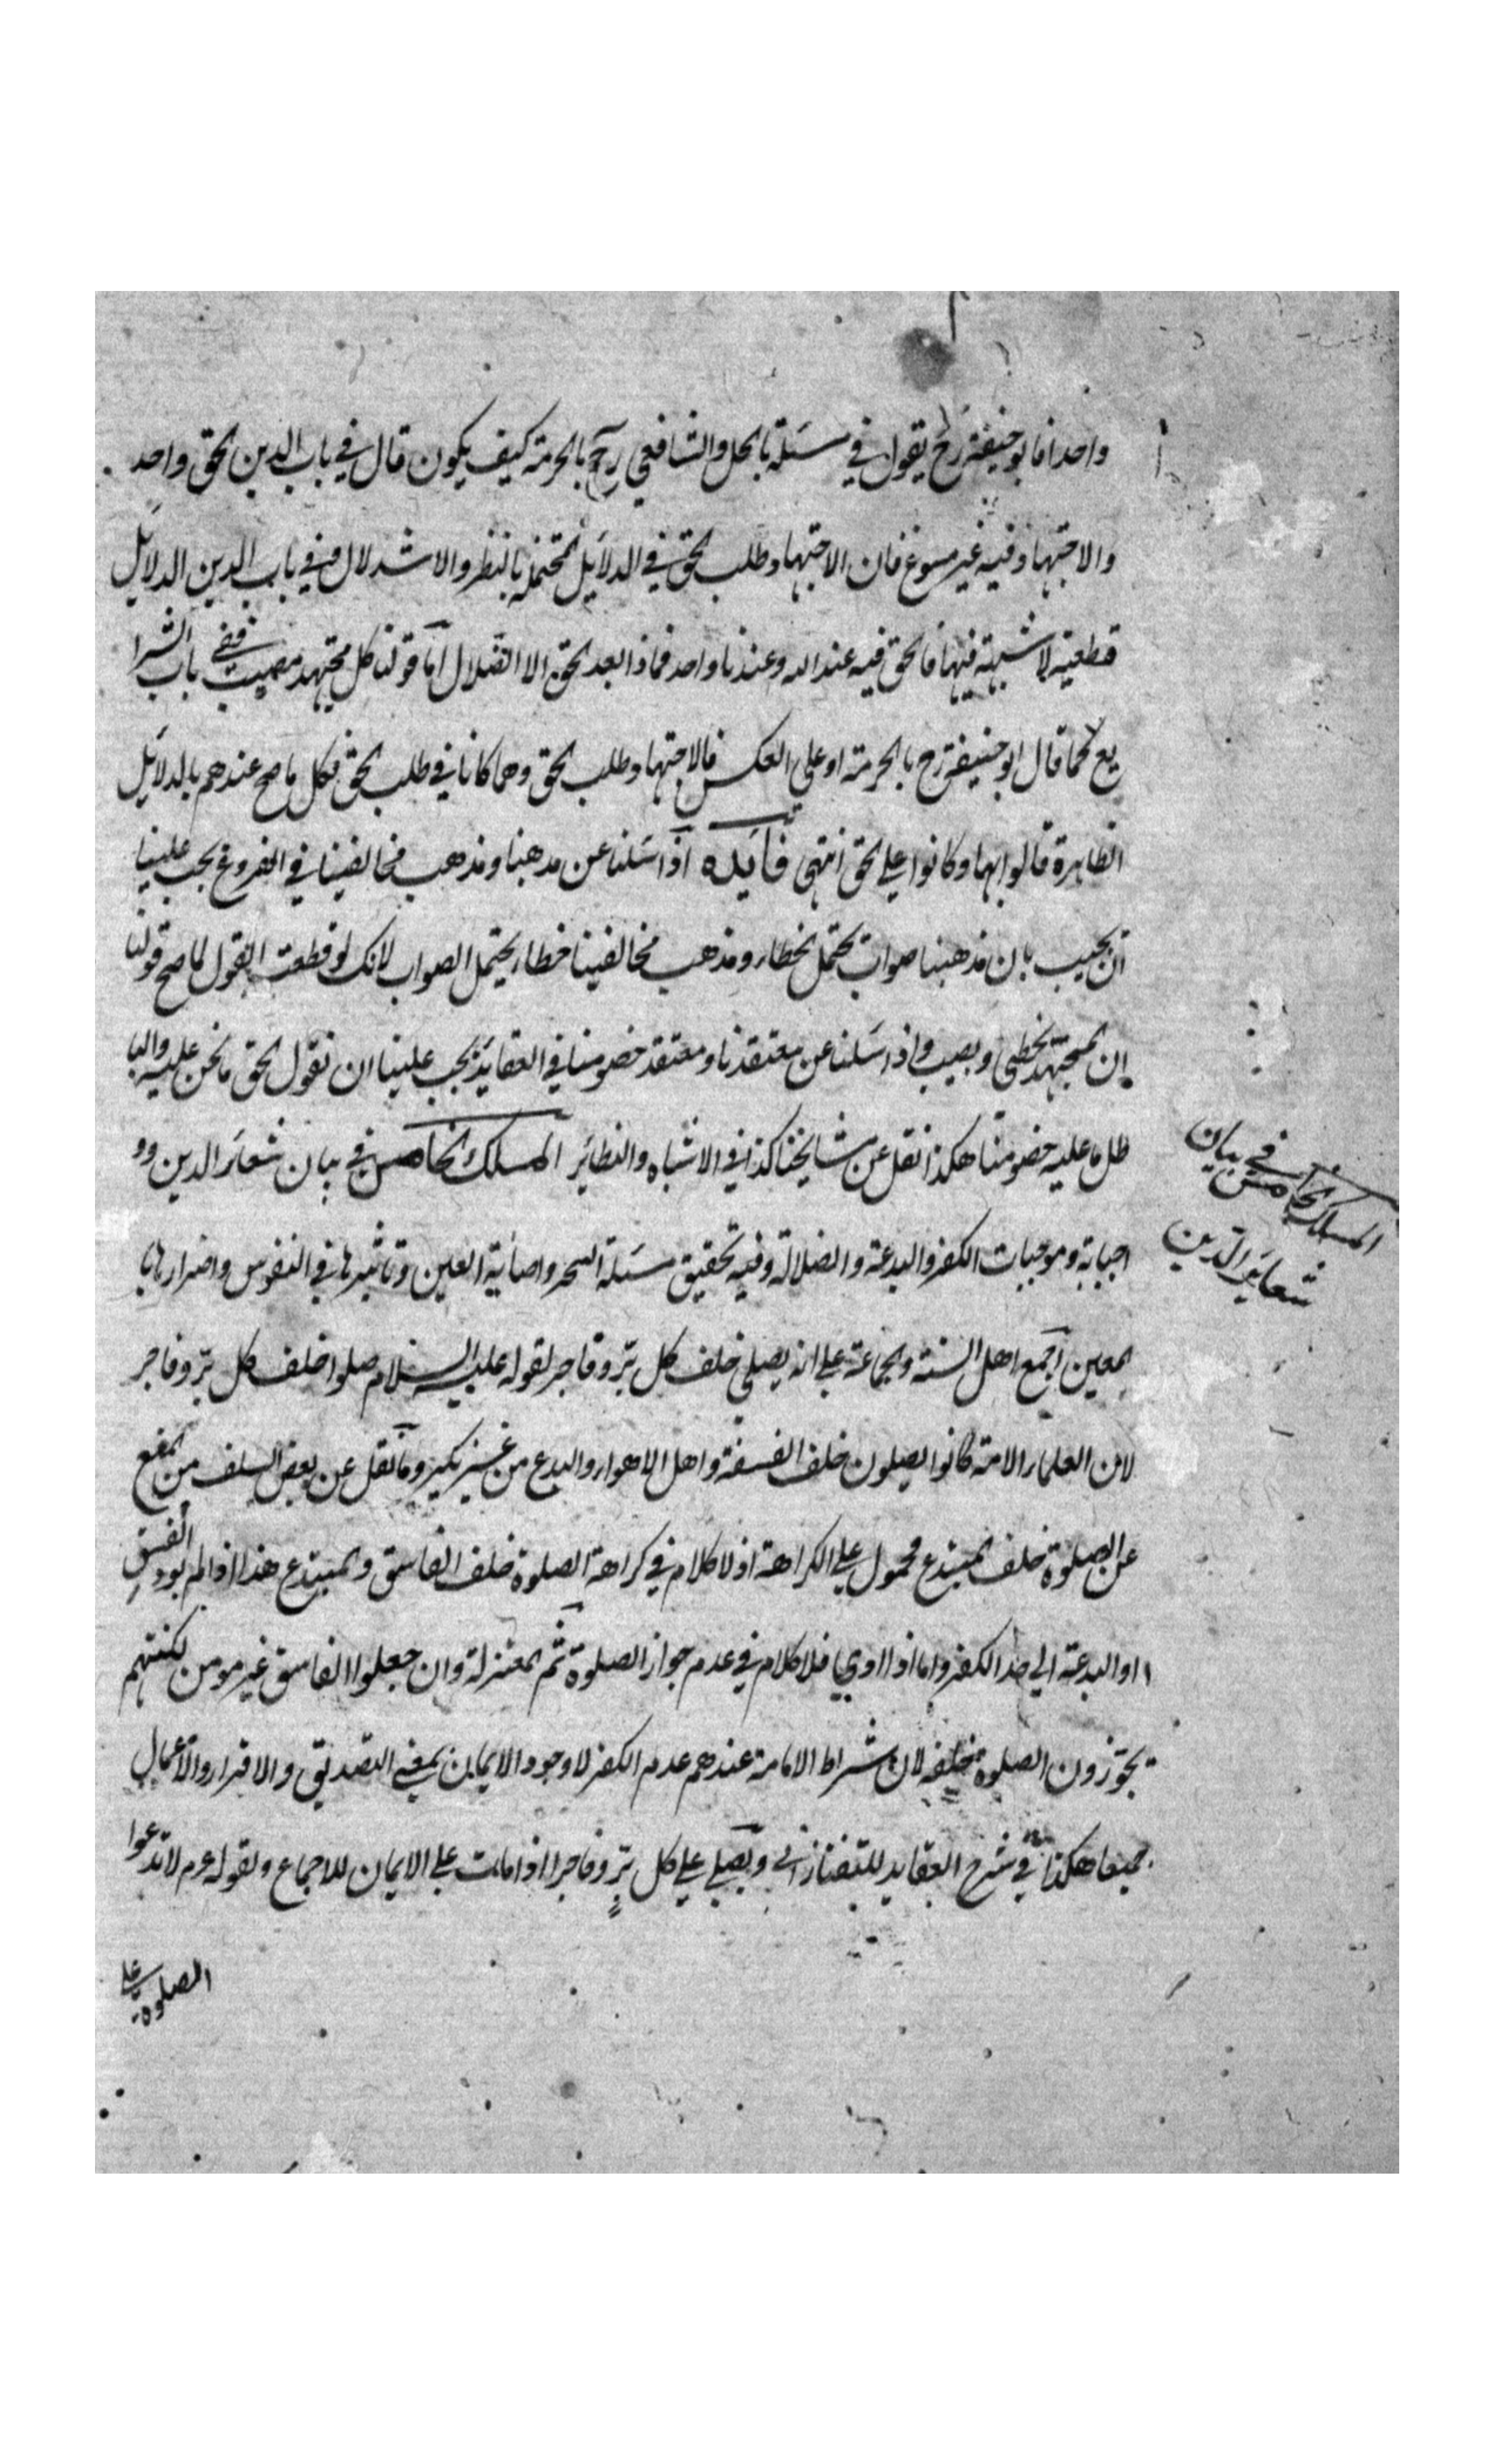 واحدا فابو حنيفة رح يقول في مسئلة بالحل والشافعي رح بالحرمة كيف يكون قال في باب الدين الحق واحد
والاجتهاد فيه غير مسوغ فان الاجتهاد طلب الحق في الدلائل المحتملة بالنظر والاستدلال وفي باب الدين الدلائل
قطعية لا شبهة فيها فالحق فيه عند الله وعندنا واحد فماذا بعد الحق الا الضلال اما قولنا كل مجتهد مصيب ففي باب الشرا
يع كما قال ابو حنيفة رح بالحرمة او على العكس فالاجتهاد طلب الحق وهما كانا في طلب الحق فكل ما صح عندهم بالدلائل
الظاهرة قالوا بها وكانوا على الحق انتهى فائده اذا سئلنا عن مذهبنا ومذهب مخالفينا في الفروع يجب علينا
ان نجيب بان مذهبنا صواب يحتمل الخطاء ومذهب مخالفينا خطاء يحتمل الصواب لانك لو قطعت القول لما صح قولنا
ان المجتهد يخطي ويصيب واذا سئلنا عن معتقدنا ومعتقد خصومنا في العقايد يجب علينا ان نقول الحق ما نحن عليه والبا
طل ما عليه خصومنا هكذا نقل عن مشايخنا كذا في الاشباه والنظائر المسلك الخامس في بيان شعائر الدين وو
اجباته وموجبات الكفر والبدعة والضلالة وفيه تحقيق مسئلة السحر واصابة العين وتاثيرها في النفوس واضرارها با
لمعين اجمع اهل السنة والجماعة على انه يصلى خلف كل بر وفاجر لقوله عليه السلام صلوا خلف كل بر وفاجر
لان العلماء الامة كانوا يصلون خلف الفسقة واهل الاهواء والبدع من غير نكير وما نقل عن بعض السلف من المنع
عن الصلوة خلف المبتدع محمول على الكراهة اذ لا كلام في كراهة الصلوة خلف الفاسق والمبتدع هذا اذا لم يود الفسق
او البدعة الى حد الكفر واما اذا ادي فلا كلام في عدم جواز الصلوة ثم المعتزلة وان جعلوا الفاسق غير مومن لكنهم
يجوزون الصلوة خلفه لان شراط الامامة عندهم عدم الكفر لا وجود الايمان بمعنى التصديق والاقرار والاعمال
جميعا هكذا في شرح العقايد للتفتازاني ويصلى على كل بر وفاجر اذا مات على الايمان للاجماع ولقوله عم لا تدعوا
الصلوة على
المسلك الخامس في بيان
شعائر الدين